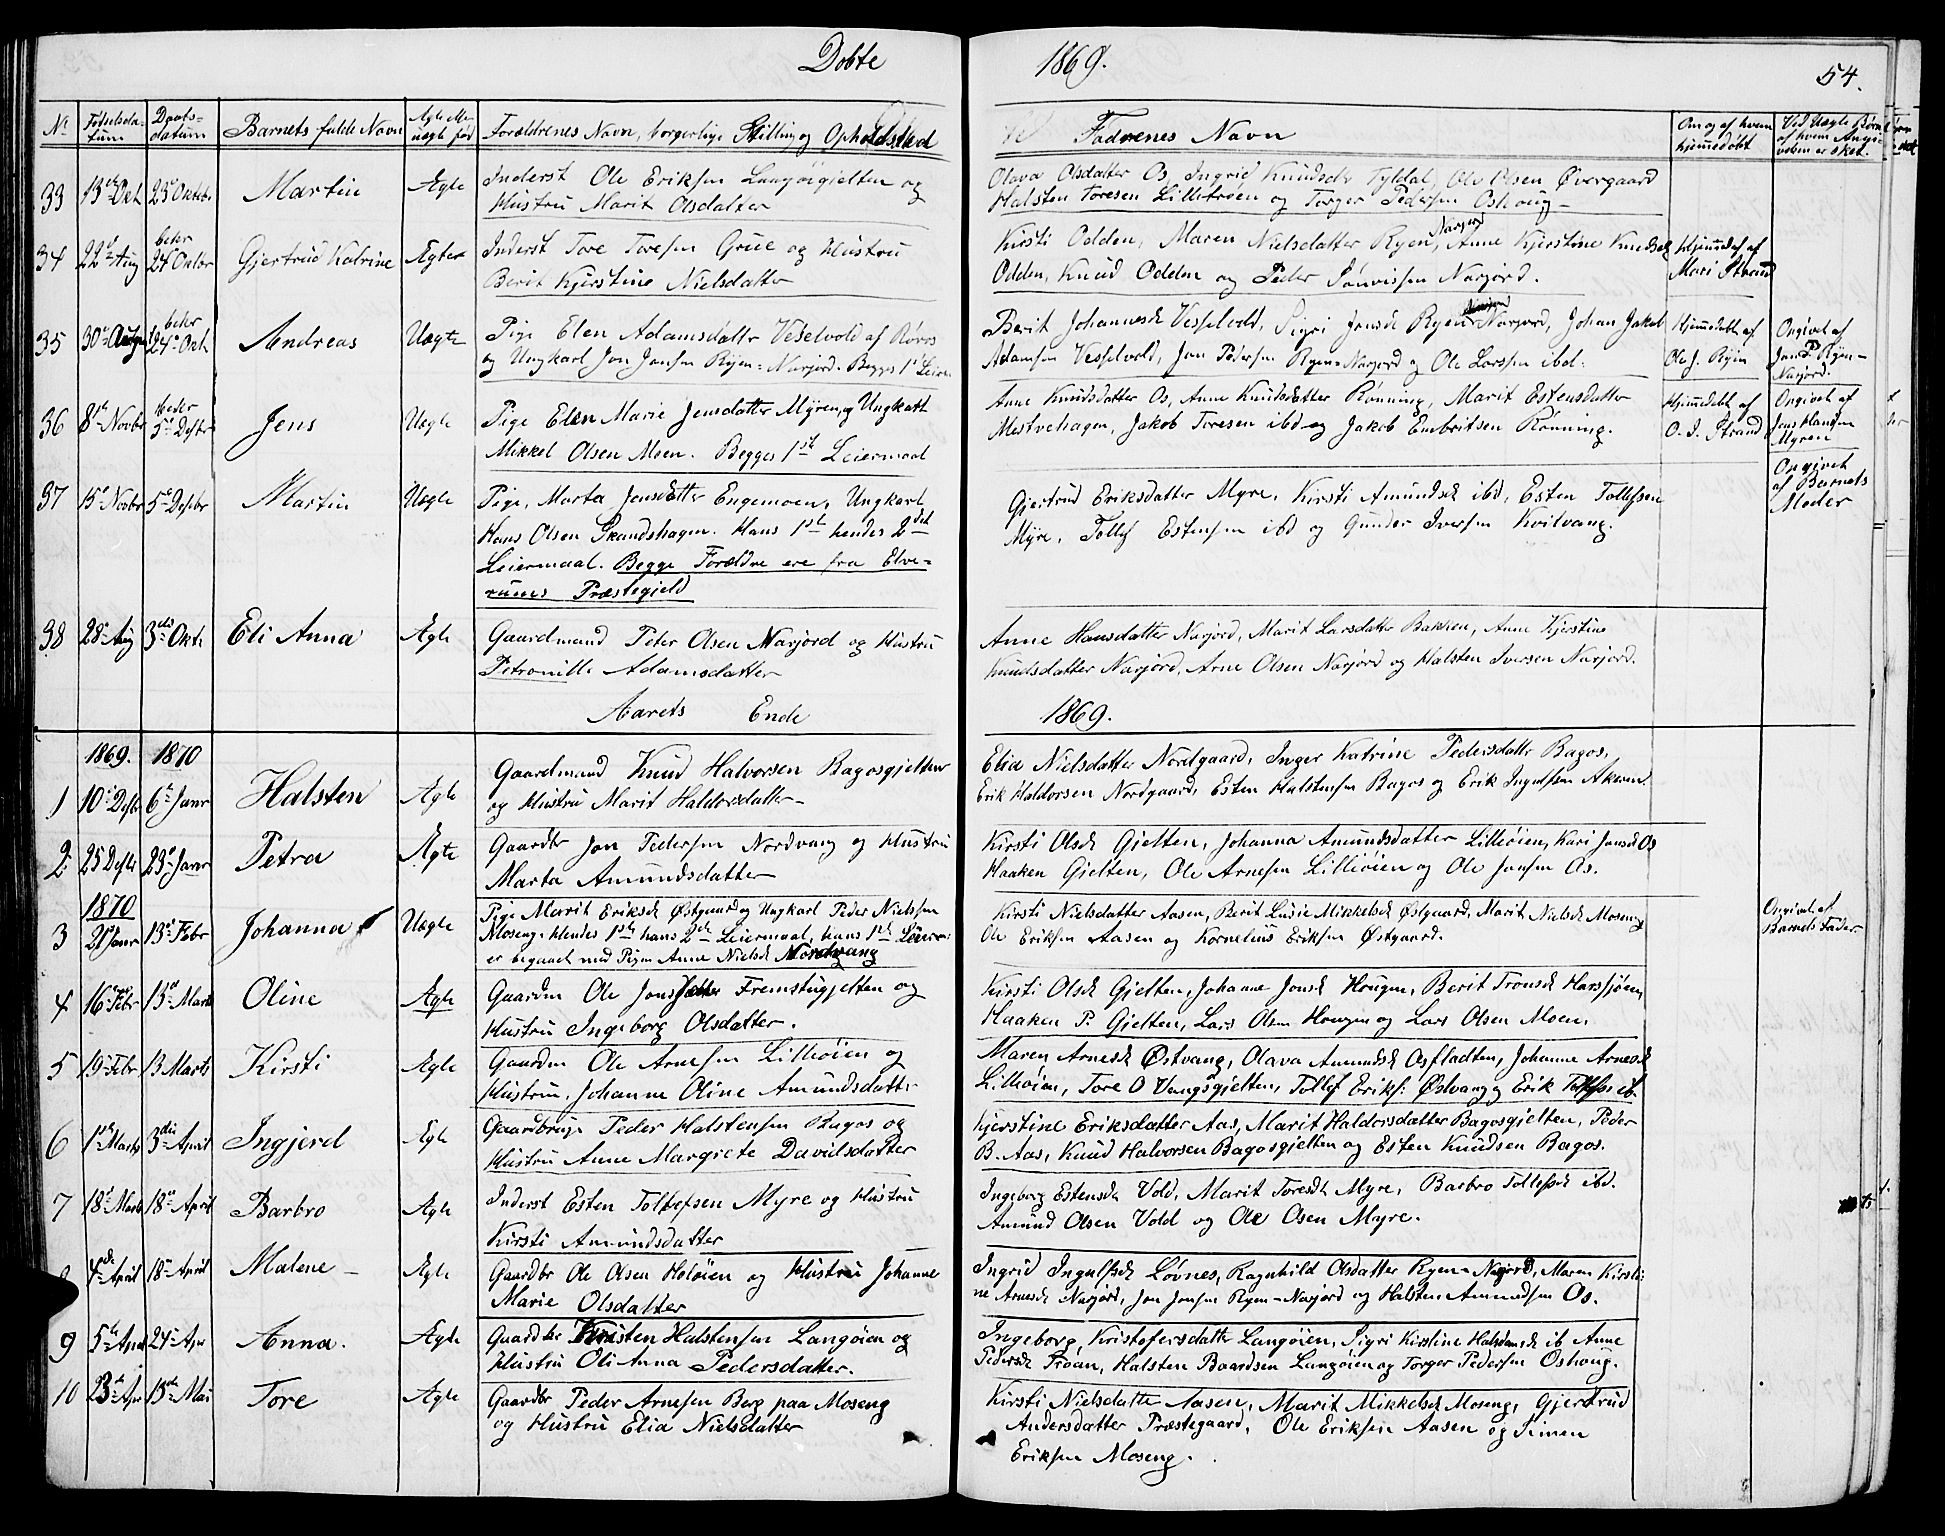 Døbte 1869. 54.
No Fødselsdatum Daabsdatum Barnets fulde Navn Ægte eller uægte født Forældrenes Navn, borgerlige Stilling og Opholdsted Faddrenes Navn Om og af hvem hjemmedøbt Ved Uægte Børn af hvem Angivelsen er skeet.
33 13de Okt 23de Oktobr Martin Ægte Inderst Ole Eriksen Langøigjelten og
Hustru Marit Olsdatter
Olava Olsdatter Os, Ingrid Knudsdr Tyldal, Ole Olsen Øvergaard
Halsten Toresen Lilletrøen og Torger Pedersen Oshoug
34 22de Aug bekr 24de Oktbr Gjertrud Katrine Ægte Inderst Tore Toresen Grue og Hustru
Berit Kjerstine Nielsdatter
Kirsti Odden, Maren Nielsdatter Ryen Narjord, Anne Kjerstine Knudsdr
Odden, Knud Odden og Peder Narjord.
Hjemmd af af
Mari Strand
35 30te August bekr 24de Okt Andreas Uægte Pige Elen Adamsdatter Vesselvold af Røros
og Ungkarl Jon Jonsen Ryen-Narjord. Begges 1ste Leierm.
Berit Johannesdr Vesselvold, Sigri Jonsdr Ryen Narjord, Johan Jakob
Adamsen Vesselvold, Jon Pedersen Ryen-Narjord og Ole Larssen ibd.
Hjemmedøbt af
Ole J. Ryen
Angivet af
Jon P. Ryen-
Narjord.
36 8de Novbr 5te Desbr Jens Uægte Pige Elen Marie Jensdatter Myren og Ungkarl
Mikkel Olsen Moen. Begges 1ste Leiermaal
Anne Knudsdatter Os, Anne Knudsdatter Rønning, Marit Estensdatter
Mestvehagen, Jakob Toresen ibd og Jakob Embritsen Rønning.
Hjemmedøbt af
O. J. Strand
Angivet af
Jens Hansen
Myren
37 15de Novbr 5te Desbr Martin Uægte Pige, Marta Jonsdatter Engemoen, Ungkarl
Hans Olsen Strandshagen. Hans 1ste hendes 2det
Leiermaal. Begge Forældre ere fra Elve-
rums Præstegjeld
Gjertrud Eriksdatter Myre, Kirsti Amundsdr ibd, Esten Tollefsen
Myre, Tollef Estensen ibd og Gunder Iversen Kvilvang.
Angivet
af Barnets
Moder
38 28de Aug 3die Okt. Eli Anna Ægte Gaardmand Peter Olsen Narjord og Hustru
Petronille Adamsdatter
Anne Hansdatter Narjord, Marit Larsdatter Bakken, Anne Kjerstine
Knudsdatter Narjord, Arne Olsen Narjord og Halsten Iversen Narjord.
Aarets Ende 1869.
1869. 1870
1 10de Desbr 6te Janr Halsten Ægte Gaardmand Knud Halvorsen Bagosgjelten
og Hustru Marit Haldorsdatter
Elia Nielsdatter Nordgaard, Inger Katrine Pedersdatter Bagos,
Erik Haldorsen Nordgaard, Esten Halstensen Bagos og Erik Ingulfsen Akeren.
2 25 Desbr 23de Janr Petra Ægte Gaardbr Jon Pedersen Nordvang og Hustru
Marta Amundsdatter
Kirsti Olsdr Gjelten, Johanna Amundsdatter Lilleøien, Kari Jonsdr Os
Haaken Gjelten, Ole Arnesen Lilleøien og Ole Jonsen Os.
1870
3 21de Janr 13de Febr Johanna Uægte Pige Marit Eriksdr Østgaard og Ungkarl Peder Nielsen
Moseng. Hendes 1ste hans 2de Leiermaal, hans 1ste Leierm.
er begaaet med Pigen Anne Nielsdr Nordvang
Kirsti Nielsdatter Aasen, Berit Lusie Mikkelsdr Østgaard, Marit Nielsdr Moseng
Ole Eriksen Aasen og Kornelius Eriksen Østgaard.
Angivet af
Barnets Fader
4 16de Febr 13de Marts Oline Ægte Gaardm Ole Jonsen Fremstugjelten og
Hustru Ingeborg Olsdatter.
Kirsti Olsdr Gjelten, Johanne Jonsdr Hougen, Berit Tronsdr Harsjøen,
Haaken P. Gjelten, Lars Olsen Hougen og Lars Olsen Moen.
5 19de Febr 13 Marts Kirsti Ægte Gaardm Ole Arnesen Lilleøien og
Hustru, Johanne Oline Amundsdatter
Maren Arnesdr Østvang, Olava Amundsdr Osfladten, Johanne Arnesdr
Lilleøien, Tore O Vangsgjelten, Tollef Eriks: Østvang og Erik Tollefsen ib.
6 1ste Marts 3die April Ingjerd Ægte Gaardbruger Peder Halstensen Bagos og
Hustru Anne Margrete Davidsdatter
Kjerstine Eriksdatter Aas, Marit Haldorsdatter Bagosgjelten, Peder
B. Aas, Knud Halvorsen Bagosgjelten og Esten Knudsen Bagos.
7 18de Marts 18de April Barbro Ægte Inderst Esten Tollefsen Myre og Hustru
Kirsti Amundsdatter
Ingeborg Estensdr Vold, Marit Toresdr Myre, Barbro Tollefsdr ibd.
Amund Olsen Vold og Ole Olsen Myre.
8 4de April 18de April Malene Ægte Gaardbr Ole Olsen Holøien og Hustru Johanne
Marie Olsdatter
Ingrid Ingulfsdr Løvnes, Ragnhild Olsdatter Ryen-Narjord, Maren Kirsti-
ne Arnesdr Narjord, Jon Jonsen Ryen-Narjord og Halsten Amundsen Os.
9 5te Apr 24de Apr Anna. Ægte Gaardbr Kristen Halstensen Langøien og
Hustru Oli Anna Pedersdatter.
Ingeborg Kristofersdatter Langøien, Sigri Kirstine Halstensdr ib Anne
Pedersdr Trøan, Halsten Baardsen Langøien og Torger Pedersen Oshoug.
10 23de Apr 15de Mai Tore Ægte Gaardbr Peder Arnesen Berg paa Moseng
og Hustru Elia Nielsdatter
Kirsti Nielsdatter Aasen, Marit Mikkelsdr Moseng, Gjertrud
Andersdatter Præstegaard, Ole Eriksen Aasen og Simen
Eriksen Moseng.